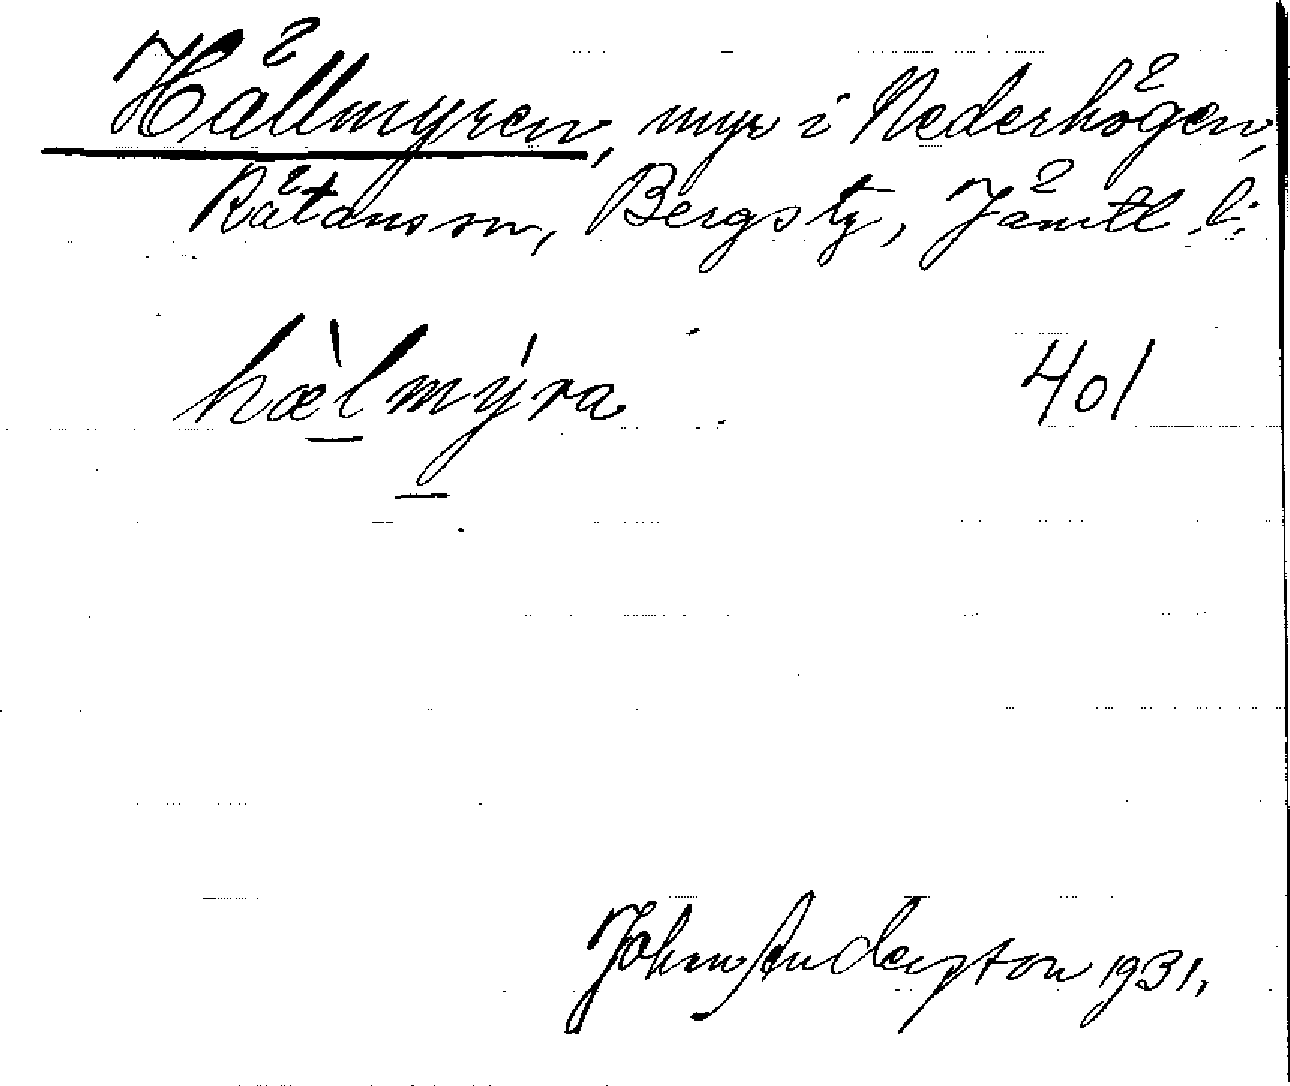 Hällmyren, myr i Nederhögen,
Rätans sn, Bergs tg, Jämtl. l:
hæ̀lmýra 401
John Anderson 1931.